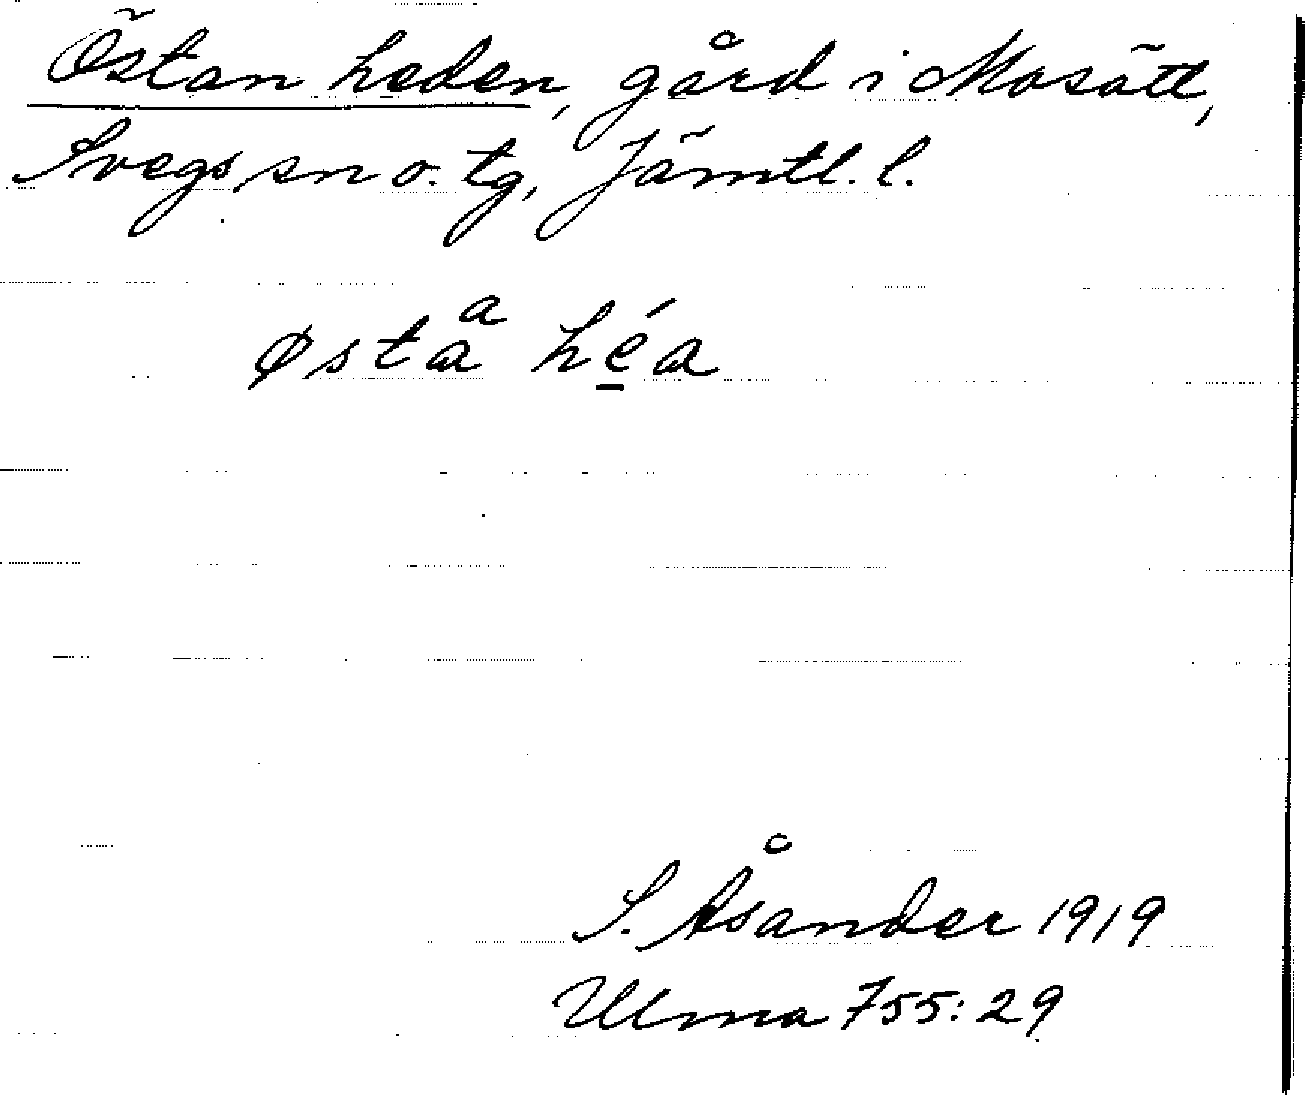 Östan heden, gård i Mosätt,
Svegs sn o. tg, Jämtl. l.
østaͣ hé̠a
S. Åsander 1919
Ulma 755:29